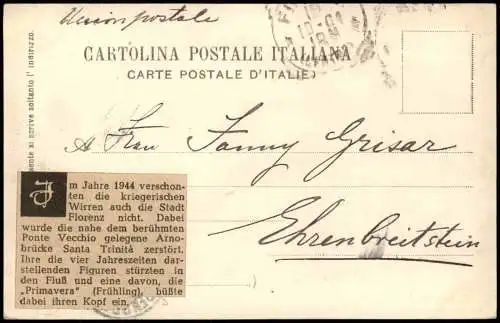 Unione postale
CARTOLINA POSTALE ITALIANA
CARTE POSTALE D'ITALIE
A Frau Fanny Grisar
Ehrenbreitstein
si scrive soltanto l' indirizzo.
Im Jahre 1944 verschon-
ten die kriegerischen
Wirren auch die Stadt
Florenz nicht. Dabei
wurde die nahe dem berühmten
Ponte Vecchio gelegene Arno-
brücke Santa Trinità zerstört.
Ihre die vier Jahreszeiten dar-
stellenden Figuren stürzten in
den Fluß und eine davon, die
„Primavera" (Frühling), büßte
dabei ihren Kopf ein.